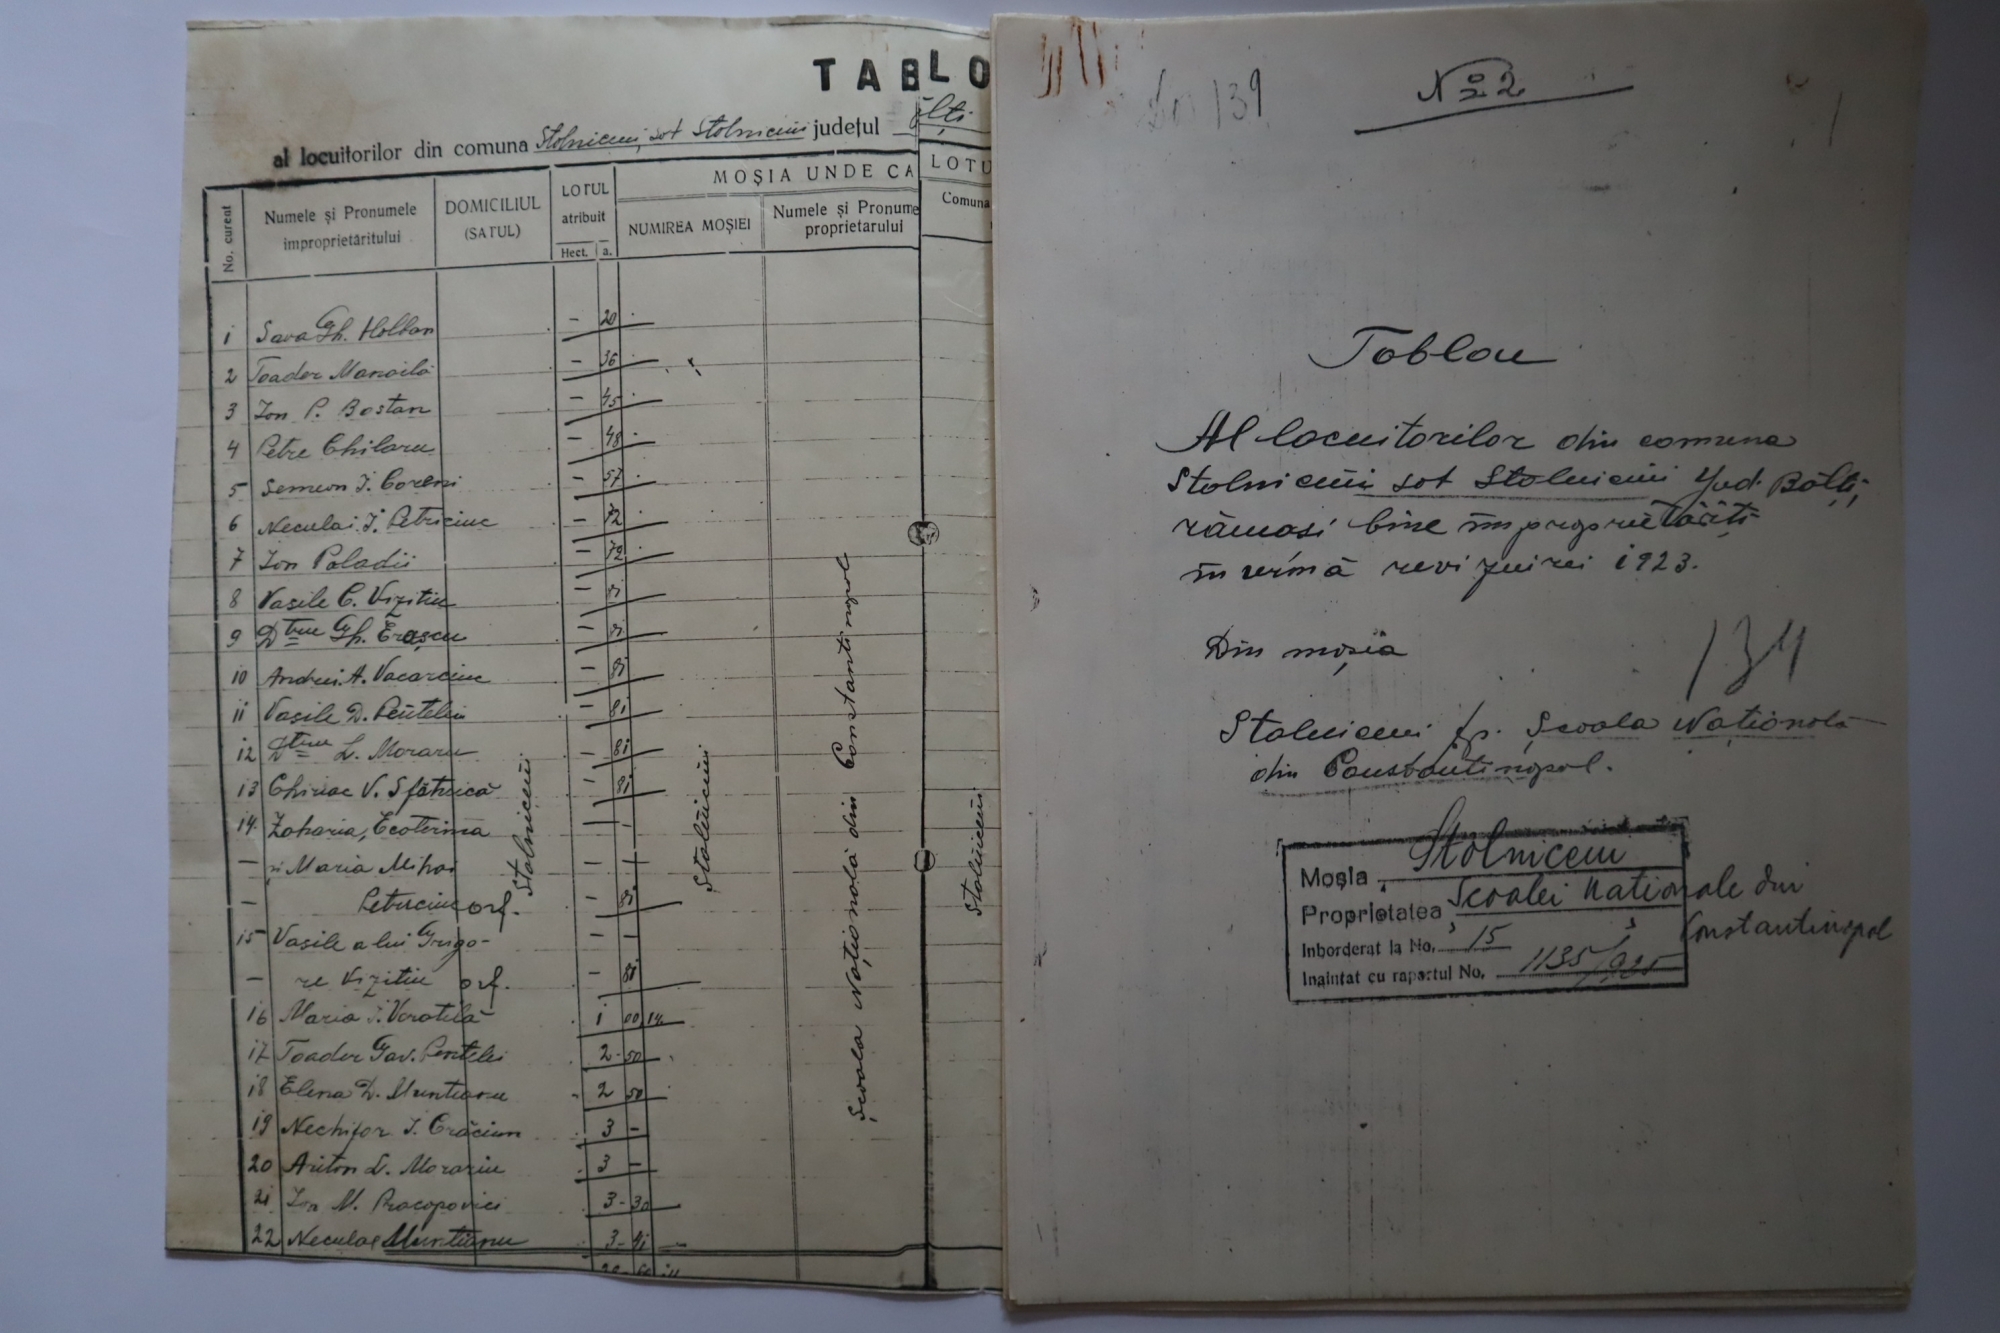 TABLO
al locuitorilor din comuna Stolniceni, sat Stolniceni județul Bălți
No. curent
Numele și Pronumele împroprietăritului
DOMICILIUL (SATUL)
LOTUL atribuit
Hect. a.
MOȘIA UNDE CA
NUMIREA MOȘIEI
Numele și Pronume proprietarului
LOTU
Comuna
1 Sava Gh. Holban - 20
2 Toader Manoilă - 36
3 Ion P. Bostan - 45
4 Petre Chilaru - 48
5 Semion I. Coreni - 57
6 Neculai I. Petriciuc - 72
7 Ion Paladii - 72
8 Vasile C. Vizitiu - 81
9 Dtru Gh. Erașcu - 81
10 Andrei A. Vacarciuc - 81
11 Vasile D. Pentelei - 81
12 Dtru L. Moraru - 81
13 Chiriac V. Sfătnică - 81
14 Zaharia, Ecaterina - -
- și Maria Mihai - -
- Petriciuc orf. - 81
15 Vasile a lui Grigo- - -
- re Vizitiu orf. - 81
16 Maria I. Voratilă 1 00 14
17 Toader Gav. Pentelei 2 - 50
18 Elena D. Munteanu 2 50
19 Nechifor I. Crăciun 3 -
20 Anton L. Morariu 3 -
21 Ion M. Procopovici 3 - 30
22 Neculae Munteanu 3 - 41
Stolniceni
Stolniceni
Școala Națională din Constantinopol
Stolniceni
139
No 2
Tablou
Al locuitorilor din comuna
Stolniceni sat Stolniceni Jud. Bălți,
rămași bine împroprietăriți
în urma revizuirei 1923.
Din moșia
134
Stolniceni fp. Școala Națională
din Constantinopol.
Moșia Stolniceni
Proprietatea Școalei Naționale din Constantinopol
Inborderat la No. 15
Inaintat cu raportul No. 1135/925